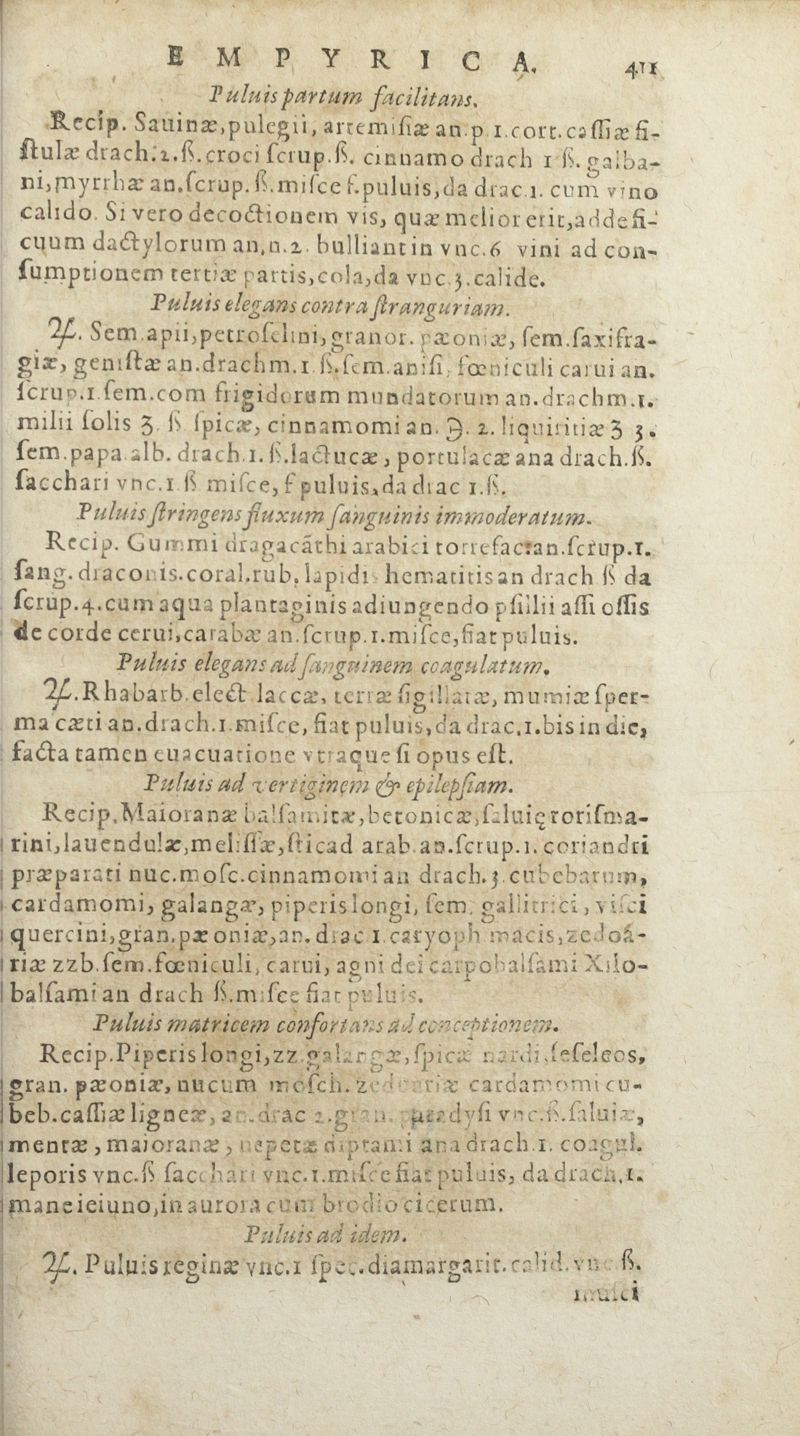 EMPYRICA, 411
Puluis partum facilitans.
Recip. Sauinæ, pulegii, artemisiæ an. p 1. cort. cassiæ fi-
stulæ drach. 2. ß. croci scrup. ß. cinnamo drach 1 ß. galba-
ni, myrrhæ an. scrup. ß. misce f. puluis, da drac. 1. cum vino
calido. Si vero decoctionem vis, quæ melior erit, adde fi-
cuum dactylorum an, n. 2. bulliant in vnc. 6 vini ad con-
sumptionem tertiæ partis, cola, da vnc. 3. calide.
Puluis elegans contra stranguriam.
♃. Sem. apii, petroselini, granor. pæoniæ, sem. saxifra-
giæ, genistæ an. drachm. 1. ß. sem. anisi, fœniculi carui an.
scrup. 1 sem. com frigidorum mundatorum an. drachm. 1.
milii solis ʒ. ß spicæ, cinnamomi an. ℈. 2. liquiritiæ ʒ 3.
sem. papa. alb. drach. 1. ß. lactucæ, portulacæ ana drach. ß.
sacchari vnc. 1 ß misce, f puluis, da drac 1. ß.
Puluis stringens fluxum sanguinis immoderatum.
Recip. Gummi dragacāthi arabici torrefact an. scrup. 1.
sang. draconis. coral. rub. lapidis hematitis an drach ß da
scrup. 4. cum aqua plantaginis adiungendo psillii assi ossis
de corde cerui, carabæ an. scrup. 1. misce, fiat puluis.
Puluis elegans ad sanguinem coagulatum.
♃. Rhabarb. elect laccæ, terræ sigillatæ, mumiæ sper-
ma cæti an. drach. 1. misce, fiat puluis, da drac. 1. bis in die,
facta tamen euacuatione vtraque si opus est.
Puluis ad vertiginem & epilepsiam.
Recip. Maioranæ balsamitæ, betonicæ, saluię rorisma-
rini, lauendulæ, melissæ, sticad arab. an. scrup. 1. coriandri
præparati nuc. mosc. cinnamomi an drach. 3. cubebarum,
cardamomi, galangæ, piperis longi, sem. gallitrici, visci
quercini, gran. pæoniæ, an. drac 1. caryoph macis, zedoa-
riæ zzb. sem. fœniculi, carui, agni dei carpobalsami Xilo-
balsami an drach ß. misce fiat puluis.
Puluis matricem confortans ad conceptionem.
Recip. Piperis longi, zz. galangæ, spicæ nardi, seseleos,
gran. pæoniæ, nucum mosch. zedoariæ cardamomi cu-
beb. cassiæ ligneæ, an. drac 2. vnc. ß. saluiæ,
mentæ, maioranæ, nepetæ diptami ana drach. 1. coagul.
leporis vnc. ß sacchari vnc. 1. misce fiat puluis, da drach. 1.
mane ieiuno, in aurora cum brodio cicerum.
Puluis ad idem.
♃. Puluis reginæ vnc. 1 spec. diamargarit. calid. vnc ß.